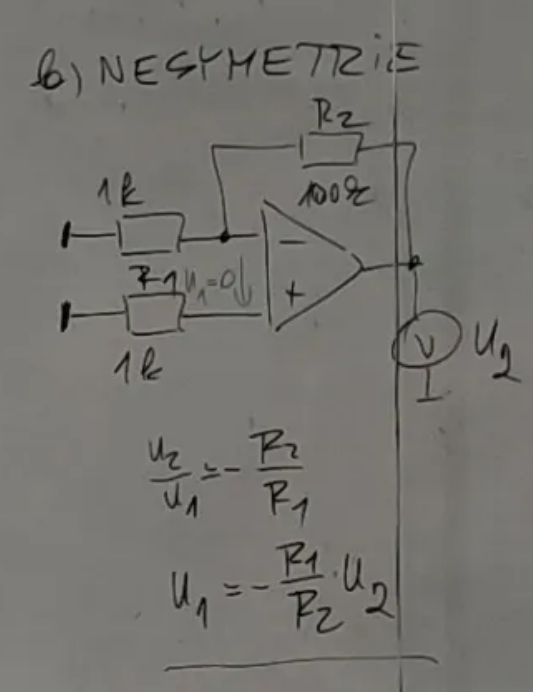 b) NESYMETRIE
R2
100k
1k
R1 U1=0
1k
−
+
V U2
U2/U1 = - R2/R1
U1 = - R1/R2 · U2